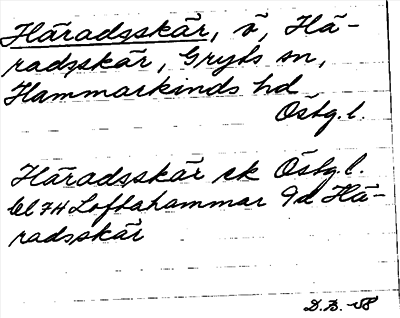 Häradsskär, ö, Hä-
radsskär, Gryts sn,
Hammarkinds hd
Östg.l.
Häradsskär ek Östg.l.
bl 74 Loftahammar 9d Hä-
radsskär
D.B. -58